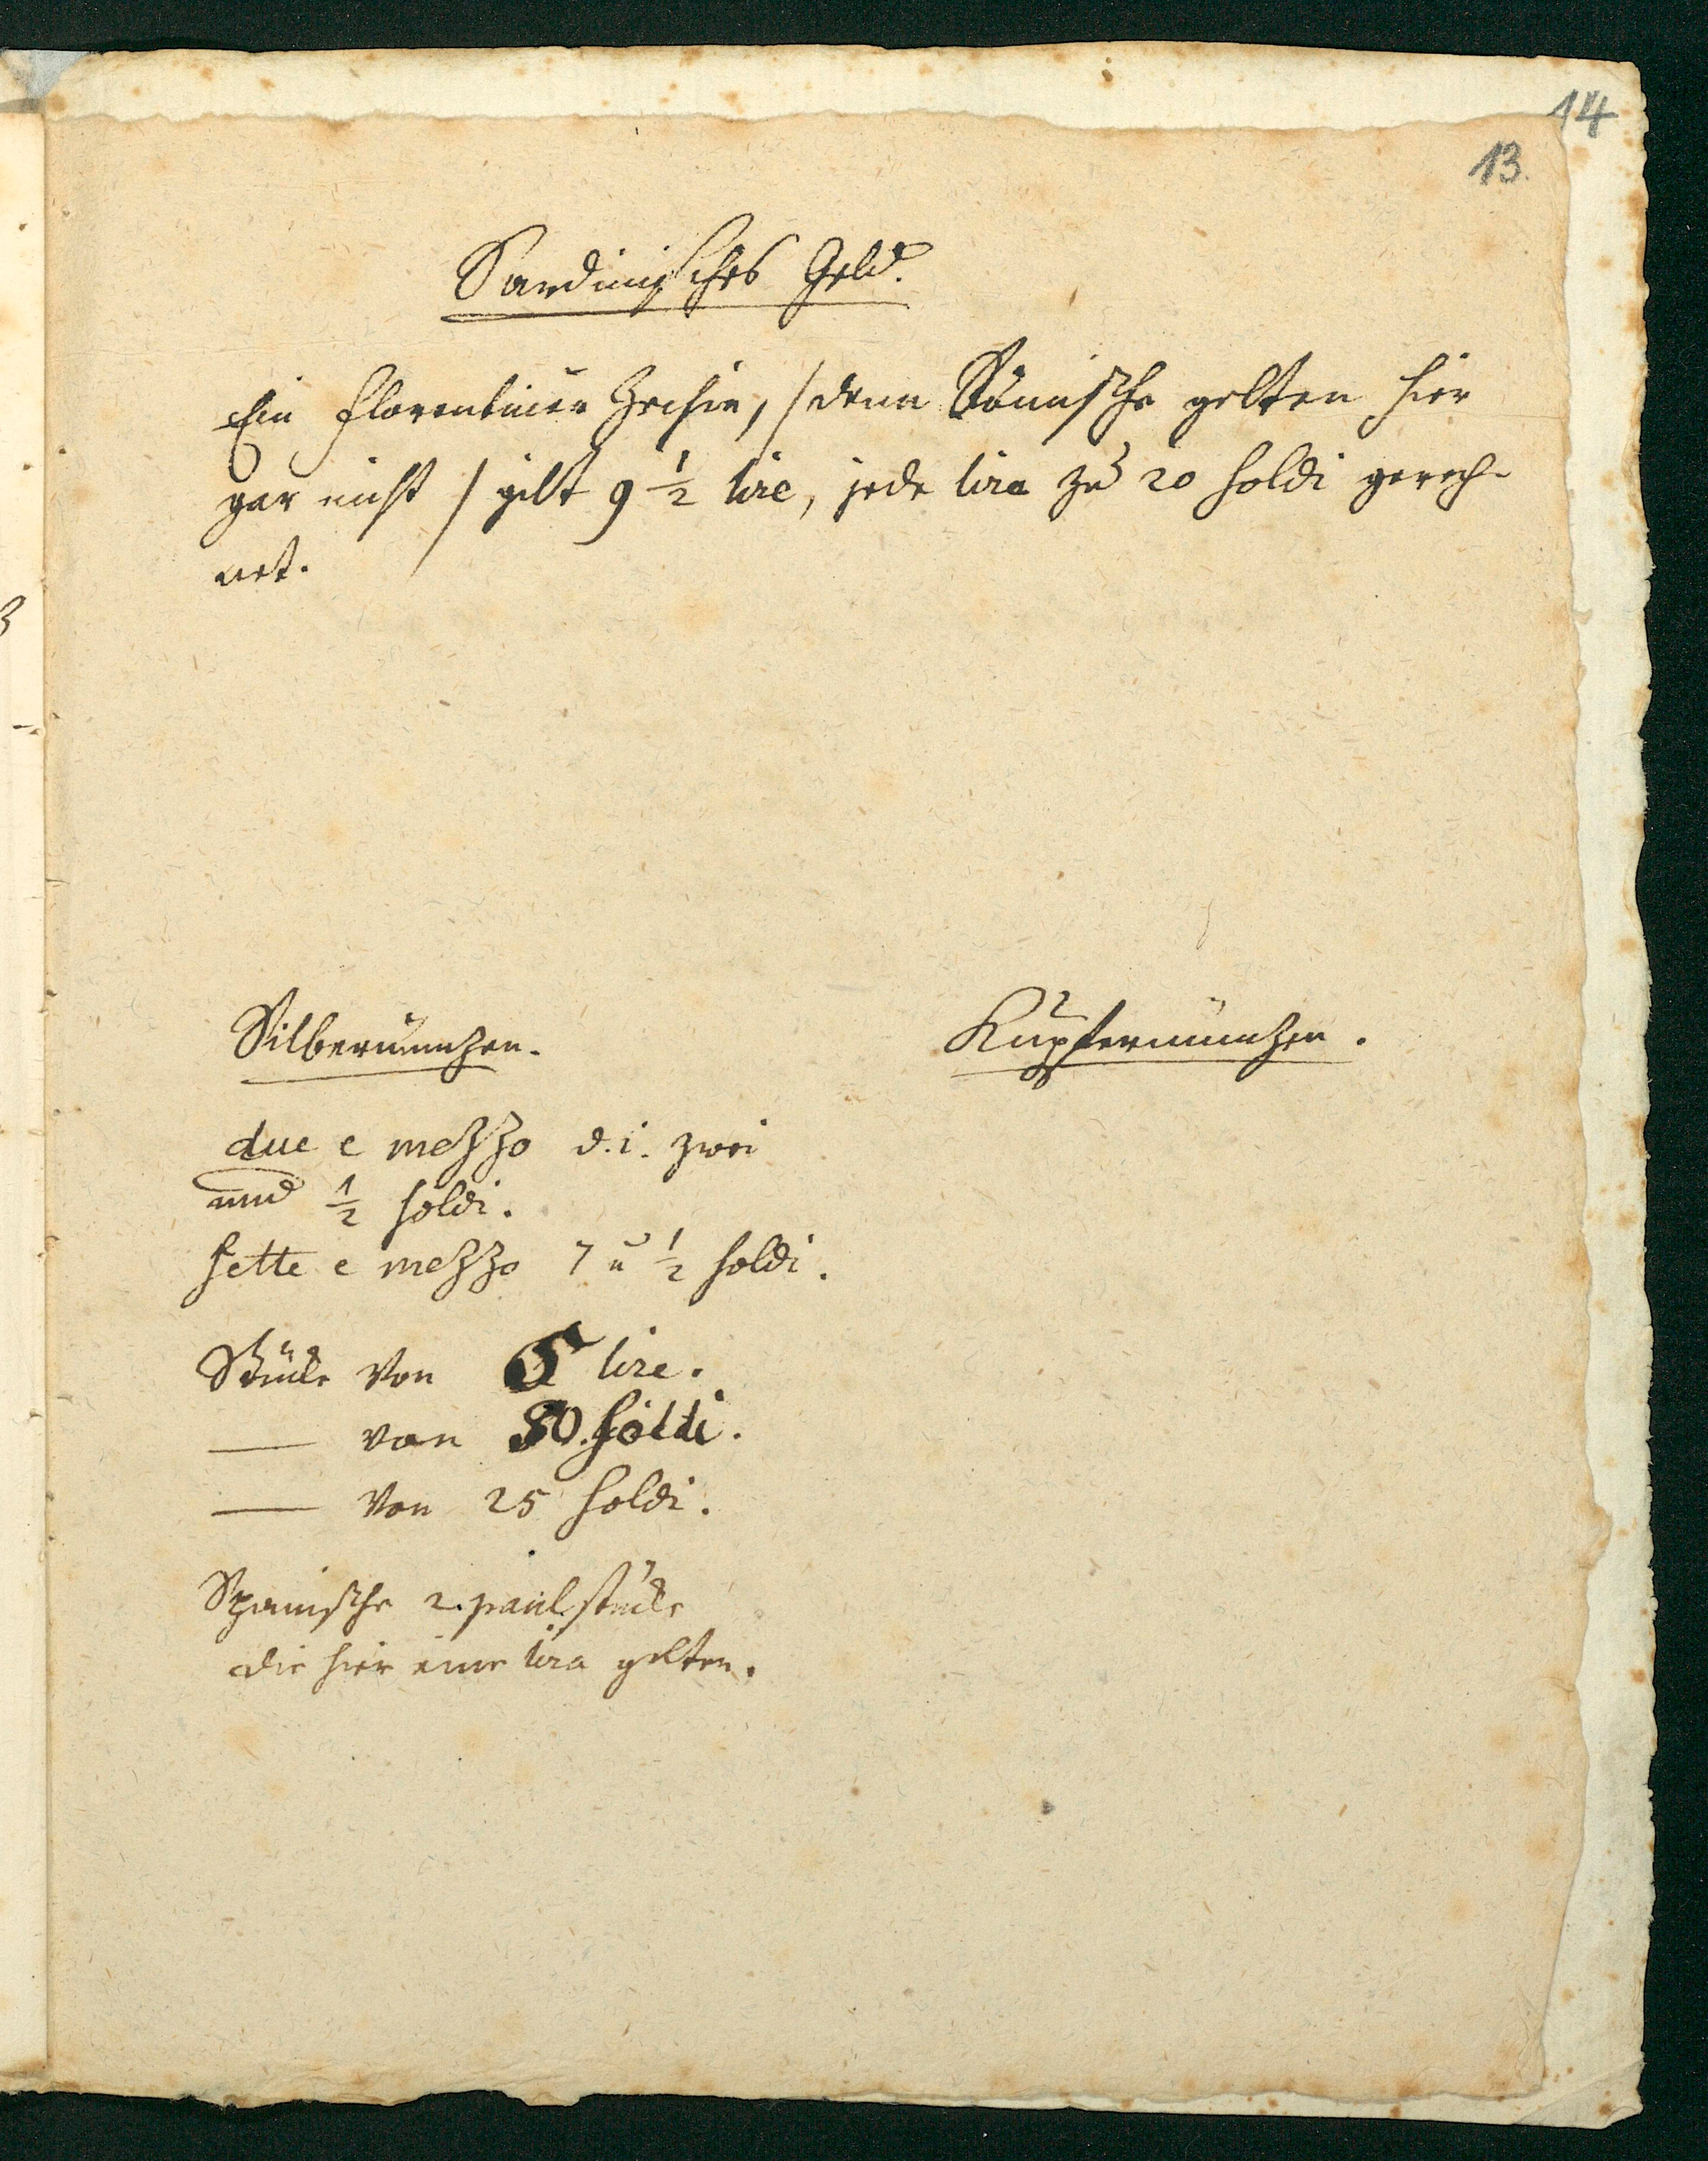 14
13.
Sardinisches Geld.
Ein florentiner Zechin, /denn Römische gelten hier
gar nicht / gilt 9 1/2 lire, jede lira zu 20 soldi gerech-
net.
Silbermünzen.
Kupfermünzen.
due e mezzo d.i. zwei
und 1/2 soldi.
sette e mezzo 7 u 1/2 soldi.
Stücke von 5 lire.
— von 50. soldi.
— von 25 soldi.
Spanische 2. paul stücke
die hier eine lira gelten.